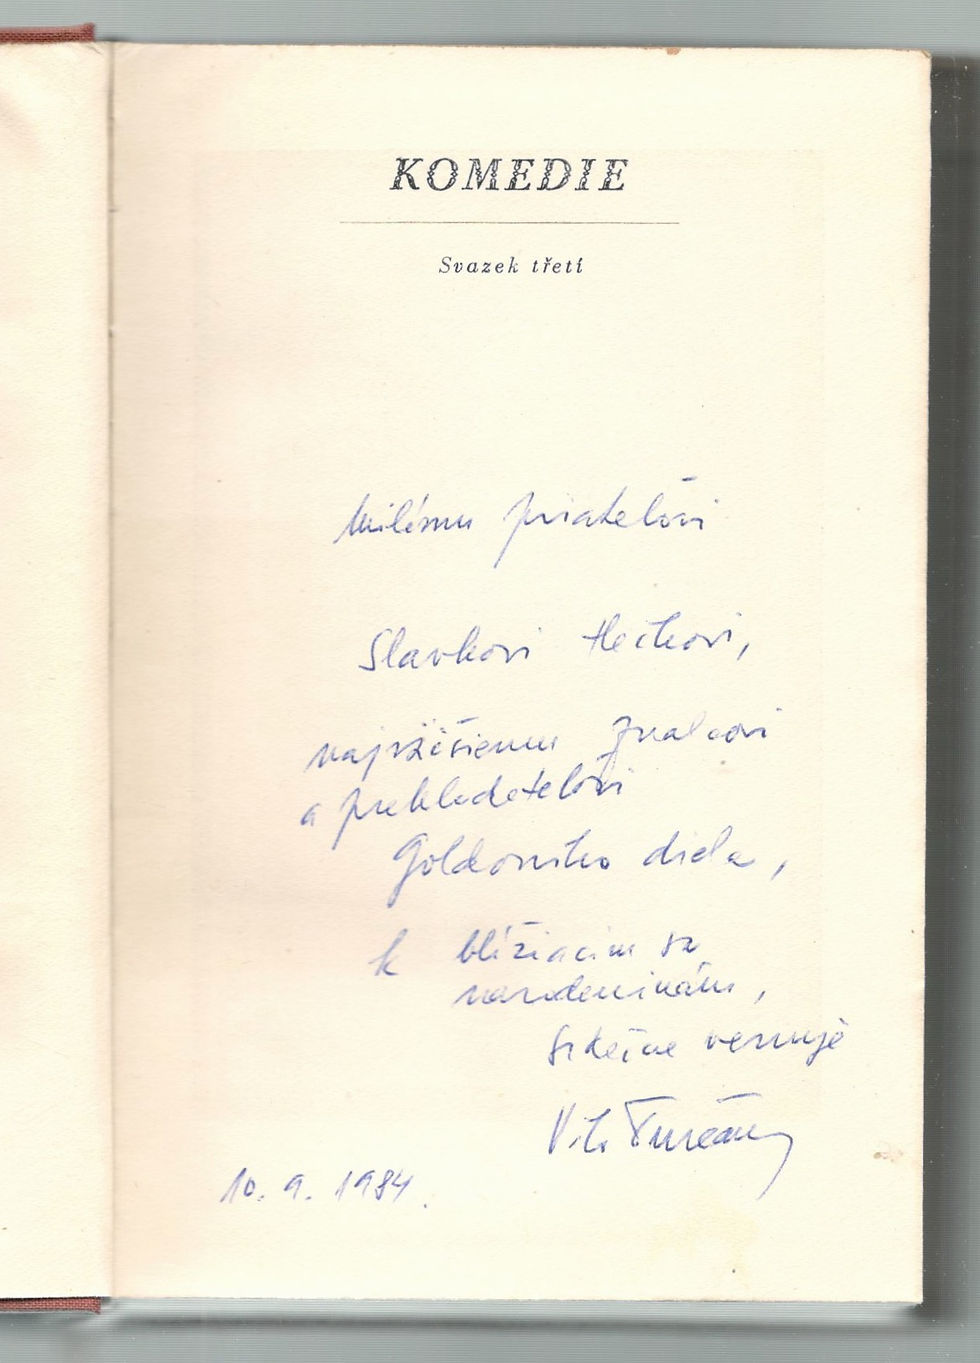 KOMEDIE
Svazek třetí
Milému priateľovi
Slavkovi Hečkovi,
najväčšiemu znalcovi
a prekladateľovi
Goldoniho diela,
k blížiacim sa
narodeninám,
srdečne venuje
Vilo Turčány
10. 9. 1984.